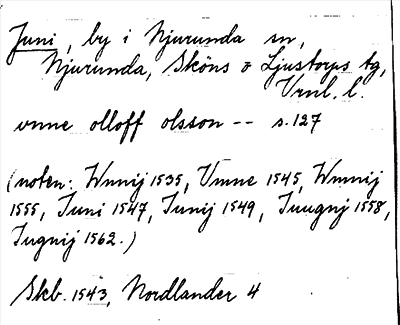 Juni, by i Njurunda sn,
Njurunda, Sköns o Ljustorps tg,
Vrnl. l.
vnne olloff olsson -- s. 127
(noten: Wnnij 1535, Vmne 1545, Wmnij
1555, Juni 1547, Junij 1549, Juugnj 1558,
Jugnij 1562.)
Skb. 1543, Nordlander 4